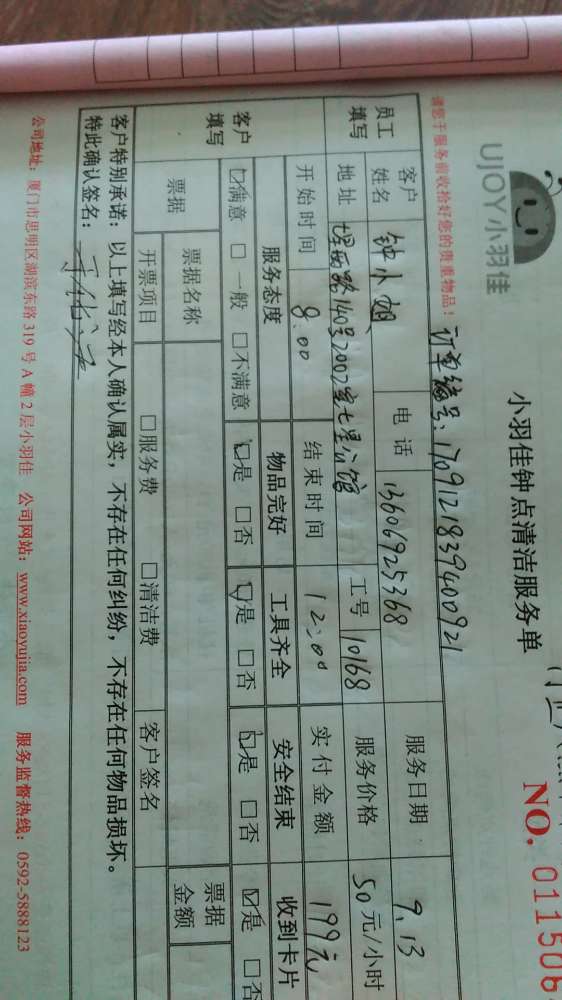 UJOY小羽佳
小羽佳钟点清洁服务单
NO. 011506
请您于服务前收拾好您的贵重物品！
订单编号：1709121839400921
员工填写 客户姓名 钟小姐 电话 13606925368 服务日期 9.13
地址 140号2002室七星公馆 工号 10168 服务价格 50元/小时
开始时间 8:00 结束时间 12:00 实付金额 199元
客户填写 服务态度 物品完好 工具齐全 安全结束 收到卡片
☑满意 □一般 □不满意 ☑是 □否 ☑是 □否 ☑是 □否 ☑是 □否
票据 票据名称 票据金额
开票项目 □服务费 □清洁费 客户签名
客户特别承诺：以上填写经本人确认属实，不存在任何纠纷，不存在任何物品损坏。
特此确认签名：
公司地址：厦门市思明区湖滨东路319号A幢2层小羽佳 公司网站：www.xiaoyujia.com 服务监督热线：0592-5888123